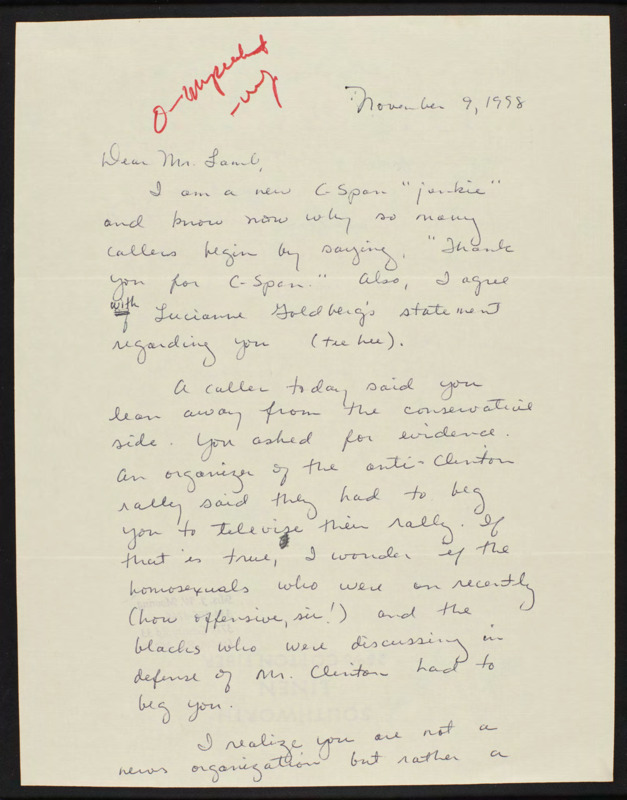 November 9, 1998
Dear Mr. Lamb,
I am a new C-Span "junkie"
and know now why so many
callers begin by saying, "Thank
you for C-Span." Also, I agree
with Lucianne Goldberg's statement
regarding you (tee hee).
A caller today said you
lean away from the conservative
side. You asked for evidence.
An organizer of the anti-Clinton
rally said they had to beg
you to televise their rally. If
that is true, I wonder if the
homosexuals who were on recently
(how offensive, sir!) and the
blacks who were discussing in
defense of Mr. Clinton had to
beg you.
I realize you are not a
news organization but rather a